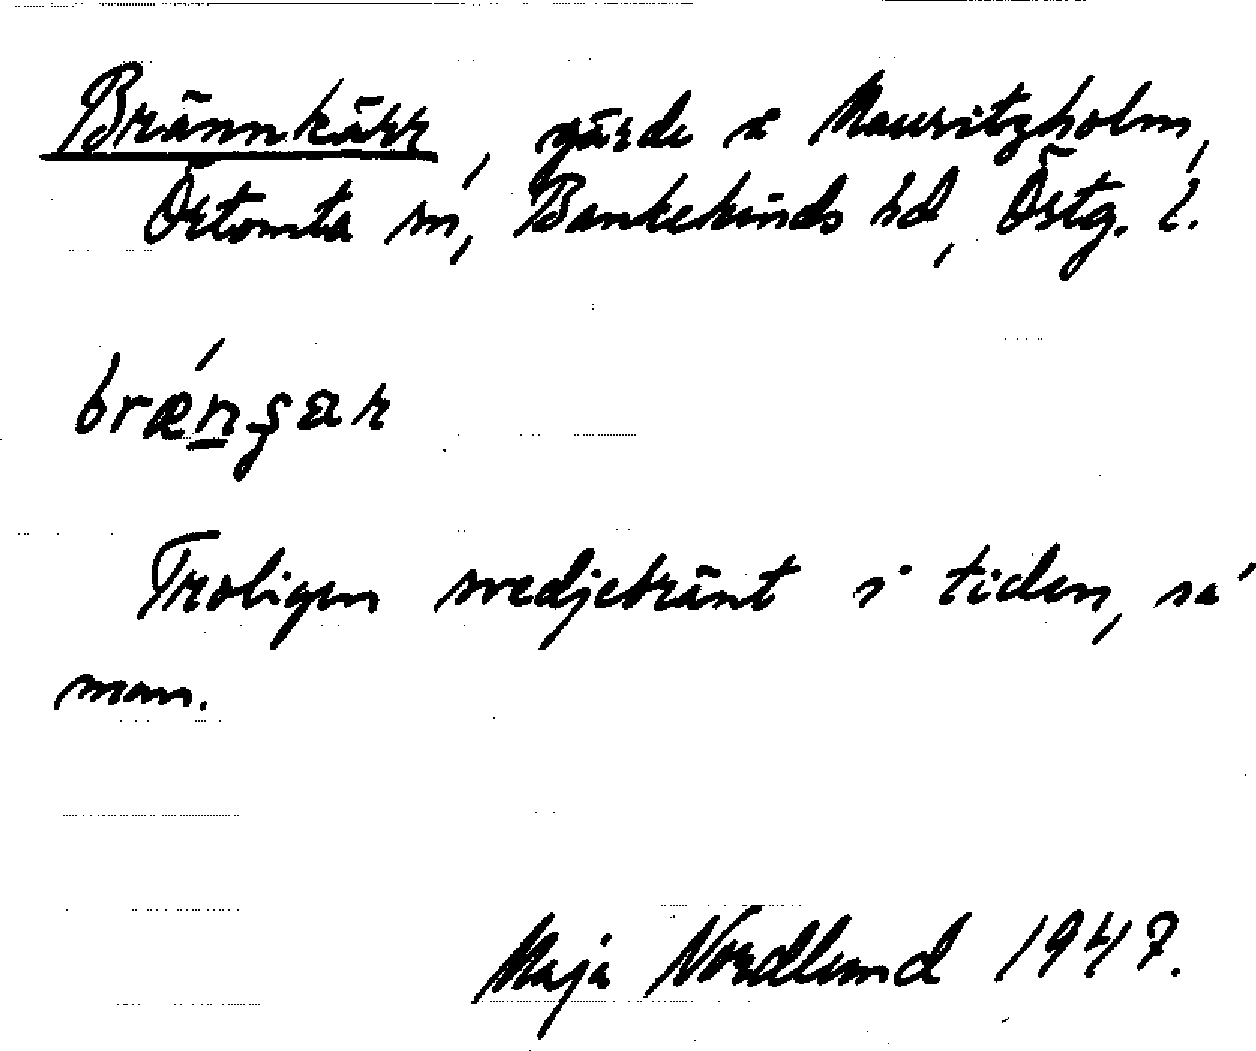 Brännkärr, gärde å Mauritzholm,
Örtomta sn, Bankekinds hd, Östg. l.
bræ´n̲şar
Troligen svedjebränt i tiden, sa'
man.
Maja Nordlund 1947.